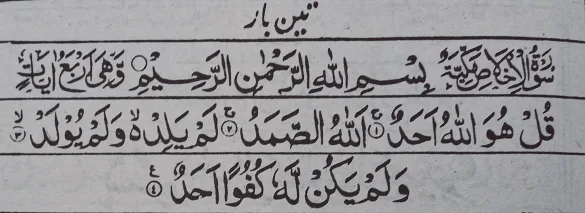 تین بار
سُوْرَةُ الْاِخْلَاصِ مَكِّيَّةٌ بِسْمِ اللهِ الرَّحْمٰنِ الرَّحِيْمِ ○ وَّهِيَ اَرْبَعُ اٰيَاتٍ
قُلْ هُوَ اللهُ اَحَدٌ ۚ﴿۱﴾ اَللهُ الصَّمَدُ ۚ﴿۲﴾ لَمْ يَلِدْ ۙ۬ وَلَمْ يُوْلَدْ ۙ﴿۳﴾
وَلَمْ يَكُنْ لَّهٗ كُفُوًا اَحَدٌ ﴿۴﴾